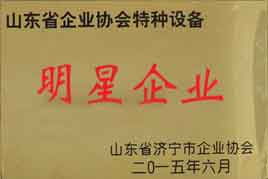 山东省企业协会特种设备
明星企业
山东省济宁市企业协会
二〇一五年六月